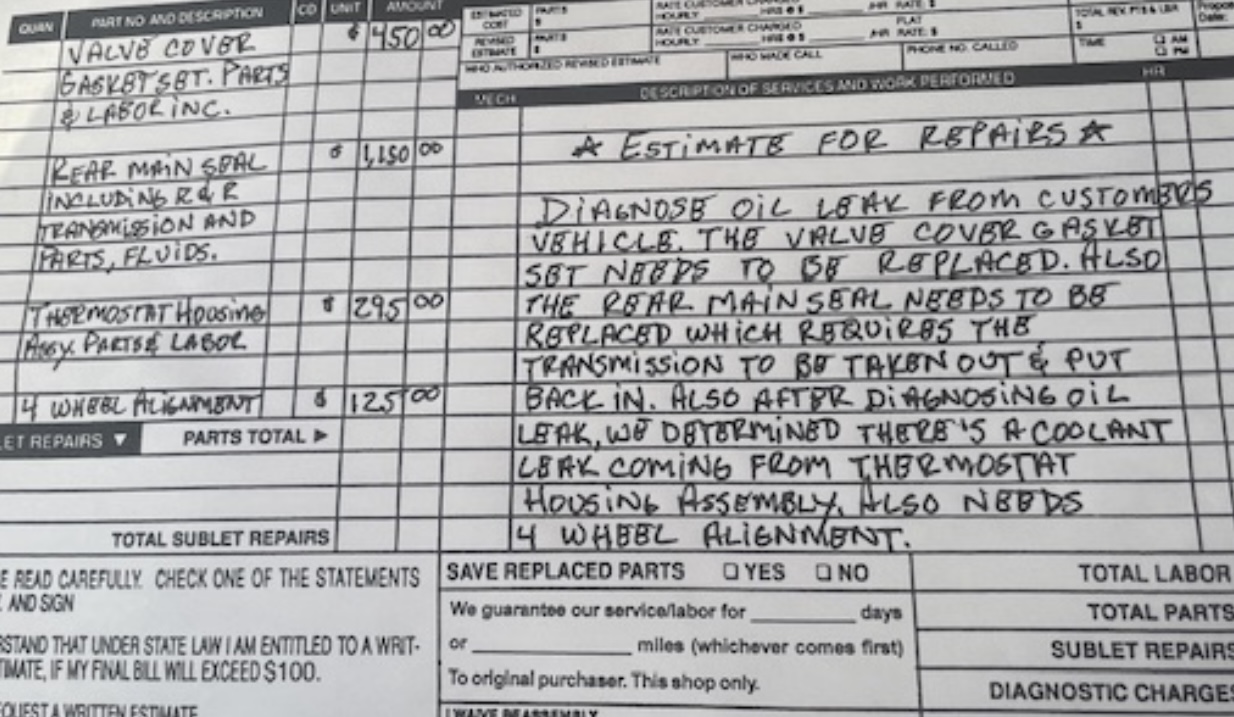 QUAN PART NO. AND DESCRIPTION CD UNIT AMOUNT
VALVE COVER $ 450 00
GASKET SET. PARTS
& LABOR INC.
REAR MAIN SEAL $ 1,150 00
INCLUDING R & R
TRANSMISSION AND
PARTS, FLUIDS.
THERMOSTAT HOUSING $ 295 00
ASSY. PARTS & LABOR
4 WHEEL ALIGNMENT $ 125 00
LET REPAIRS ▼ PARTS TOTAL ▶
TOTAL SUBLET REPAIRS
E READ CAREFULLY. CHECK ONE OF THE STATEMENTS
AND SIGN
RSTAND THAT UNDER STATE LAW I AM ENTITLED TO A WRIT-
TIMATE, IF MY FINAL BILL WILL EXCEED $100.
QUEST A WRITTEN ESTIMATE
ESTIMATED COST PARTS $
RATE CUSTOMER CHARGED
HOURLY HRS @ $ /HR RATE: $
TOTAL REV. PTS & LBR
REVISED ESTIMATE PARTS $
RATE CUSTOMER CHARGED FLAT
HOURLY HRS @ $ /HR RATE: $
TIME AM
PM
WHO AUTHORIZED REVISED ESTIMATE WHO MADE CALL PHONE NO. CALLED
MECH DESCRIPTION OF SERVICES AND WORK PERFORMED HR
☆ ESTIMATE FOR REPAIRS ☆
DIAGNOSE OIL LEAK FROM CUSTOMERS
VEHICLE. THE VALVE COVER GASKET
SET NEEDS TO BE REPLACED. ALSO
THE REAR MAIN SEAL NEEDS TO BE
REPLACED WHICH REQUIRES THE
TRANSMISSION TO BE TAKEN OUT & PUT
BACK IN. ALSO AFTER DIAGNOSING OIL
LEAK, WE DETERMINED THERE'S A COOLANT
LEAK COMING FROM THERMOSTAT
HOUSING ASSEMBLY. ALSO NEEDS
4 WHEEL ALIGNMENT.
SAVE REPLACED PARTS ☐ YES ☐ NO
We guarantee our service/labor for ________ days
or ____________ miles (whichever comes first)
To original purchaser. This shop only.
I WAIVE REASSEMBLY
TOTAL LABOR
TOTAL PARTS
SUBLET REPAIRS
DIAGNOSTIC CHARGES